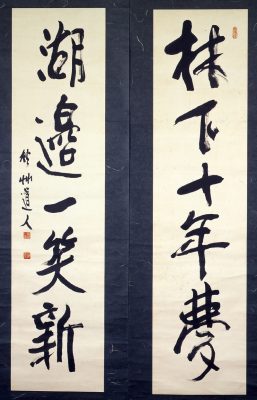 林下十年夢
湖邊一笑新
道人